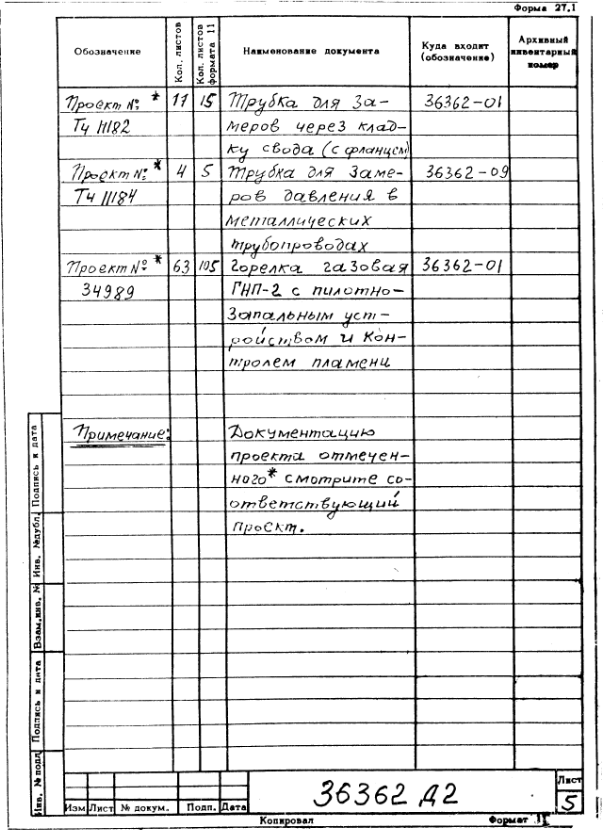 Форма 27.1
Обозначение Кол. листов Кол. листов формата 11 Наименование документа Куда входит (обозначение) Архивный инвентарный номер
Проект №* 11 15 Трубка для за- 36362-01
ТЧ 11182 меров через клад-
ку свода (с фланцем)
Проект №* 4 5 Трубка для заме- 36362-09
ТЧ 11184 ров давления в
металлических
трубопроводах
Проект №* 63 105 Горелка газовая 36362-01
34989 ГНП-2 с пилотно-
запальным уст-
ройством и кон-
тролем пламени
Примечание: Документацию
проекта отмечен-
ного* смотрите со-
ответствующий
проект.
Инв. № подл. Подпись и дата Взам. инв. № Инв. № дубл. Подпись и дата
36362 Д2
Лист
5
Изм Лист № докум. Подп. Дата
Копировал Формат 11